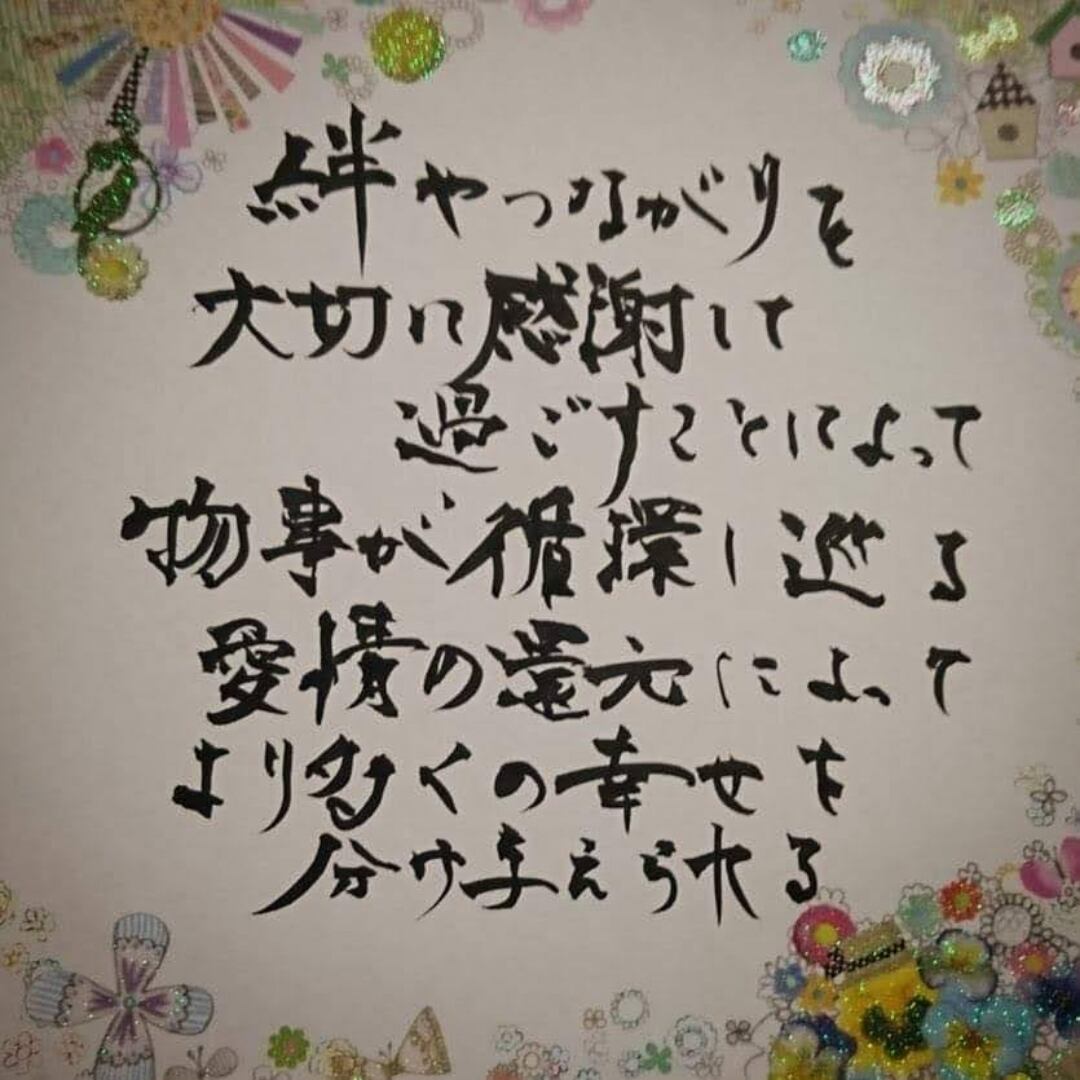 絆やつながりを
大切に感謝して
過ごすことによって
物事が循環し巡る
愛情の還元によって
より多くの幸せを
分け与えられる